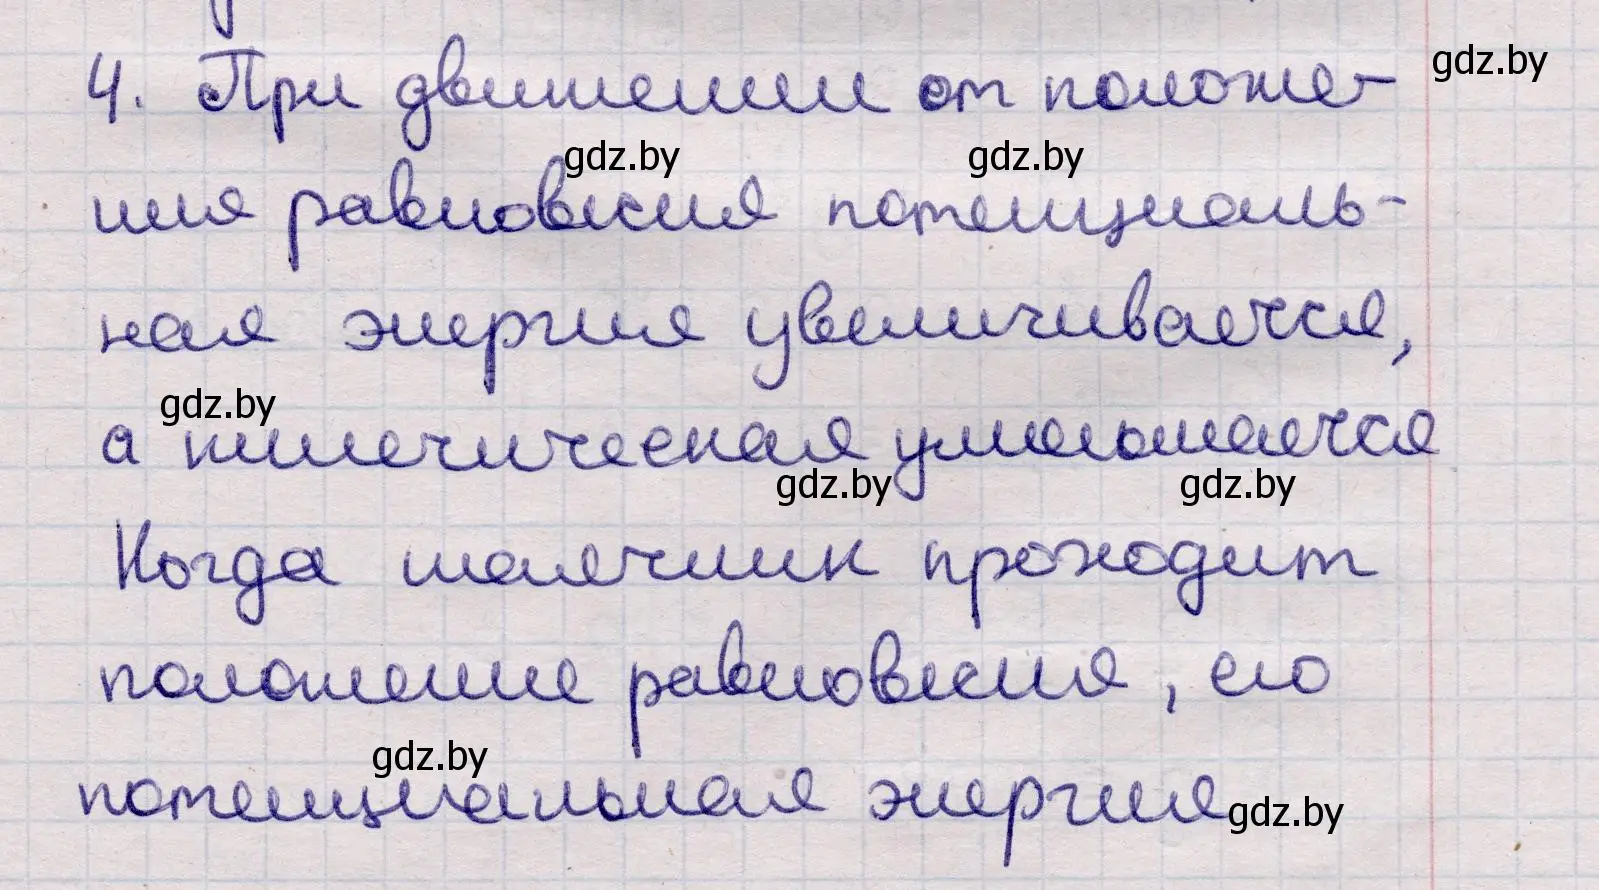 4. При движении от положе-
gdz.by
gdz.by
gdz.by
ния равновесия потенциаль-
ная энергия увеличивается,
gdz.by
а кинетическая уменьшается
gdz.by
gdz.by
Когда маятник проходит
положение равновесия, его
gdz.by
потенциальная энергия
gdz.by